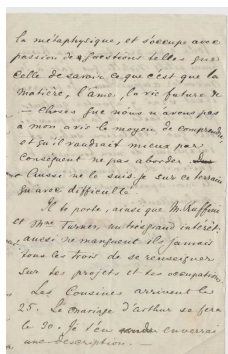 la métaphysique, et s'occupe avec
passion de questions telles que
celle de savoir ce que c'est que la
matière, l'âme, la vie future &
— Choses que nous n'avons pas
à mon avis le moyen de comprendre
et qu'il vaudrait mieux par
conséquent ne pas aborder
Aussi ne le suis-je sur ce terrain
qu'avec difficulté
Il te porte, ainsi que M. Ruffini
et Mme Turner, un très grand intérêt:
aussi ne manquent ils jamais
tous les trois de se renseigner
sur tes projets et tes occupations.
Les Cousines arrivent le
25. Le mariage d'Arthur se fera
le 30. Je t'en enverrai
une description. —